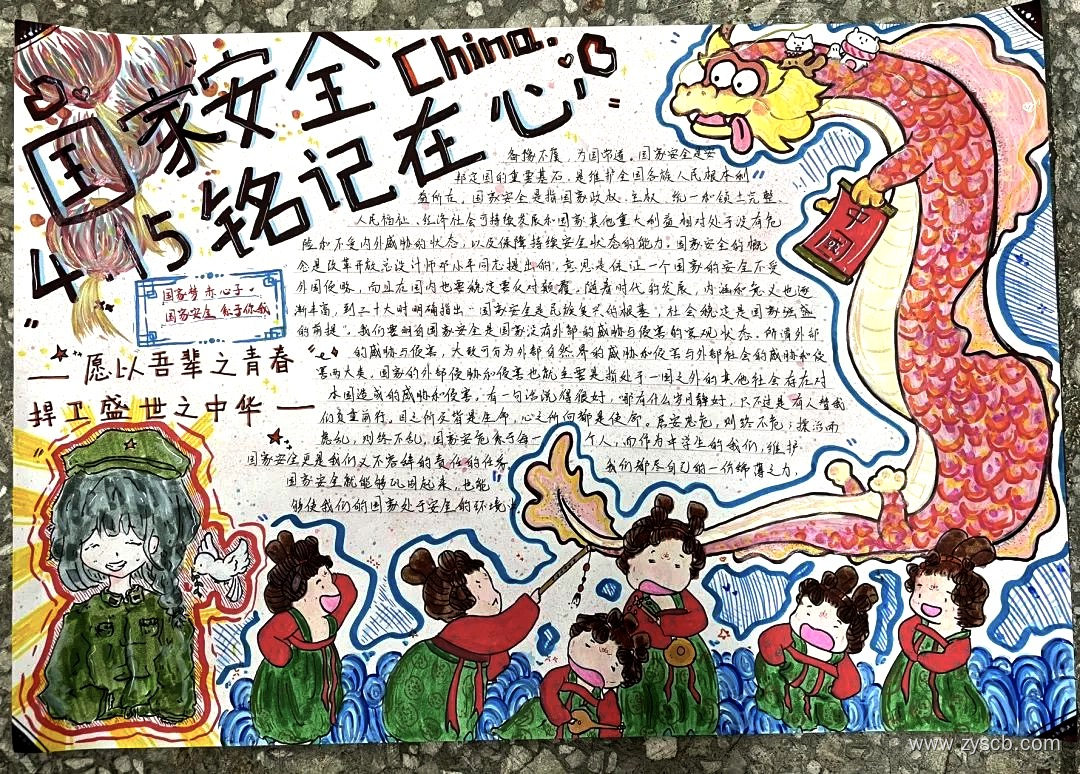 国家安全 China.
4.15 铭记在心
国家梦 赤心子。
国家安全 系于你我
——"愿以吾辈之青春
捍卫盛世之中华——"
中国
备豫不虞,为国常道。国家安全是安
邦定国的重要基石,是维护全国各族人民根本利
益所在,国家安全是指国家政权、主权、统一和领土完整、
人民福祉、经济社会可持续发展和国家其他重大利益相对处于没有危
险和不受内外威胁的状态,以及保障持续安全状态的能力。国家安全的概
念是改革开放总设计师邓小平同志提出的,意思是保证一个国家的安全不受
外国侵略,而且在国内也要稳定要反对颠覆,随着时代的发展,内涵和意义也逐
渐丰富,到二十大时明确指出"国家安全是民族复兴的根基",社会稳定是国家强盛
的前提",我们要明白国家安全是国家没有外部的威胁与侵害的客观状态。所谓外部
的威胁与侵害,大致可分为外部自然界的威胁和侵害与外部社会的威胁和侵
害两大类。国家的外部侵胁和侵害也就主要是指处于一国之外的其他社会存在对
本国造成的威胁和侵害,有一句话说得很好,哪有什么岁月静好,只不过是有人替我
们负重前行,目之所及皆是生命,心之所向都是使命。居安思危,则终不危;操治而
虑乱,则终不乱。国家安危系于每一个人,而作为中学生的我们,维护
国家安全更是我们义不容辞的责任的任务。我们都尽自己的一份绵薄之力,
国家安全就能够巩固起来,也能
够使我们的国家处于安全的环境
www.zyscb.com